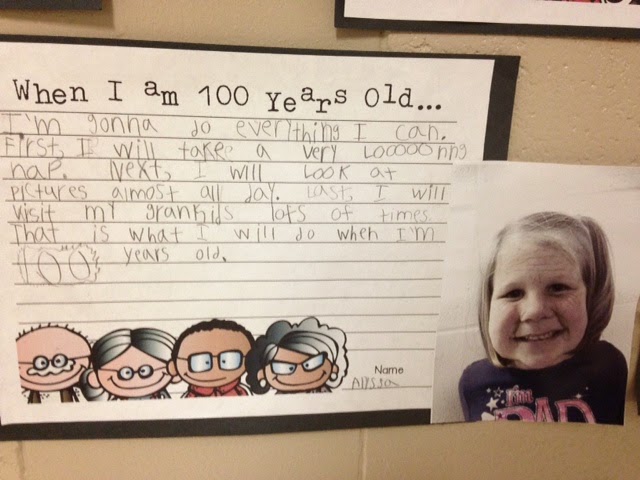 When I am 100 Years Old...
I'm gonna do everything I can.
First, I will take a very Looooonng
nap. Next, I will Look at
pictures almost all day. Last, I will
visit my grankids lots of times.
That is what I will do when I'm
100 years old.
Name